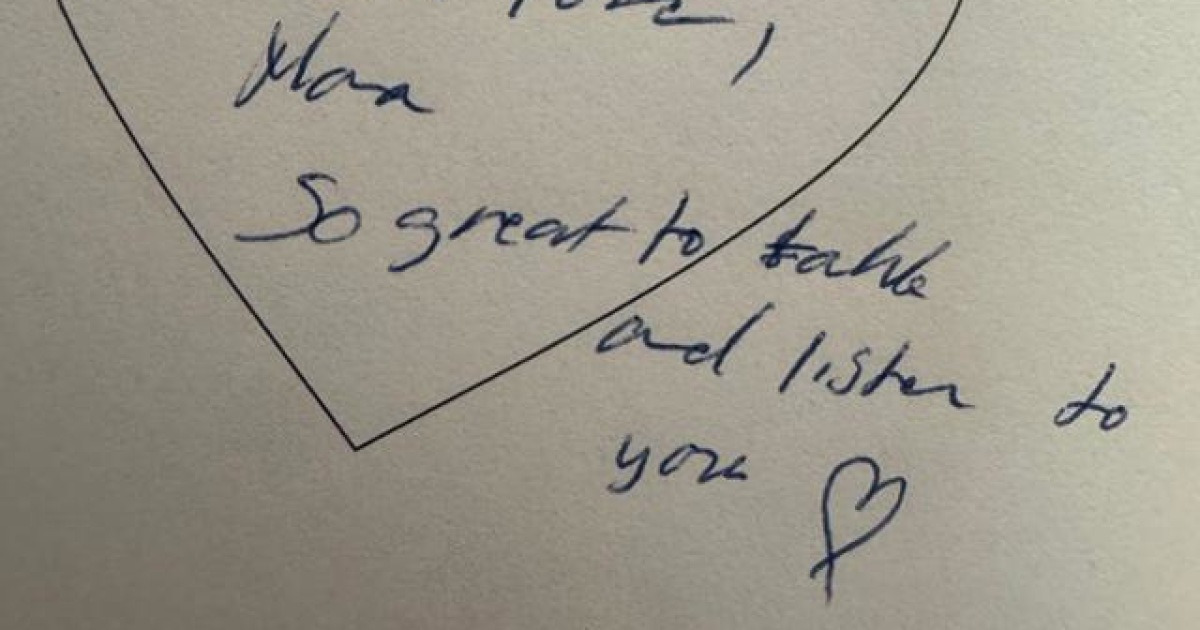 So great to talk
and listen to
you ♡